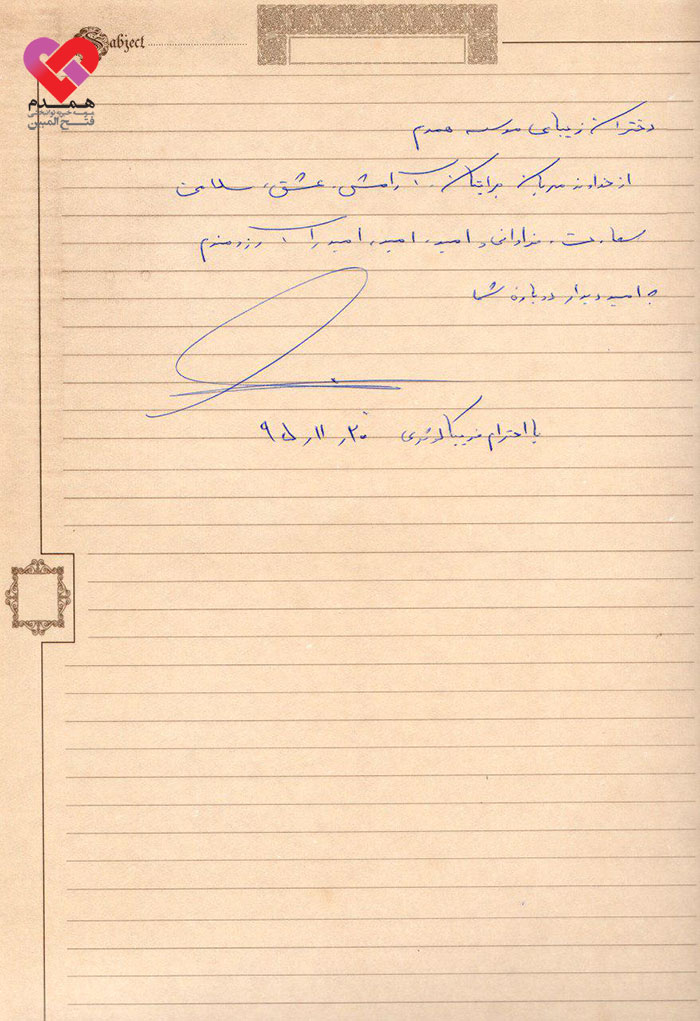 Sabject
همدم
موسسه خیریه توانبخشی
فتح المبین
دختران زیبای موسسه همدم
از خداوند مهربان برایتان آرامش، عشق، سلامتی
سعادت، فراوانی و امید، امید، امید را آرزومندم
به امید دیدار دوباره شما
با احترام فریبا کوثری ۹۵/۱۱/۲۰